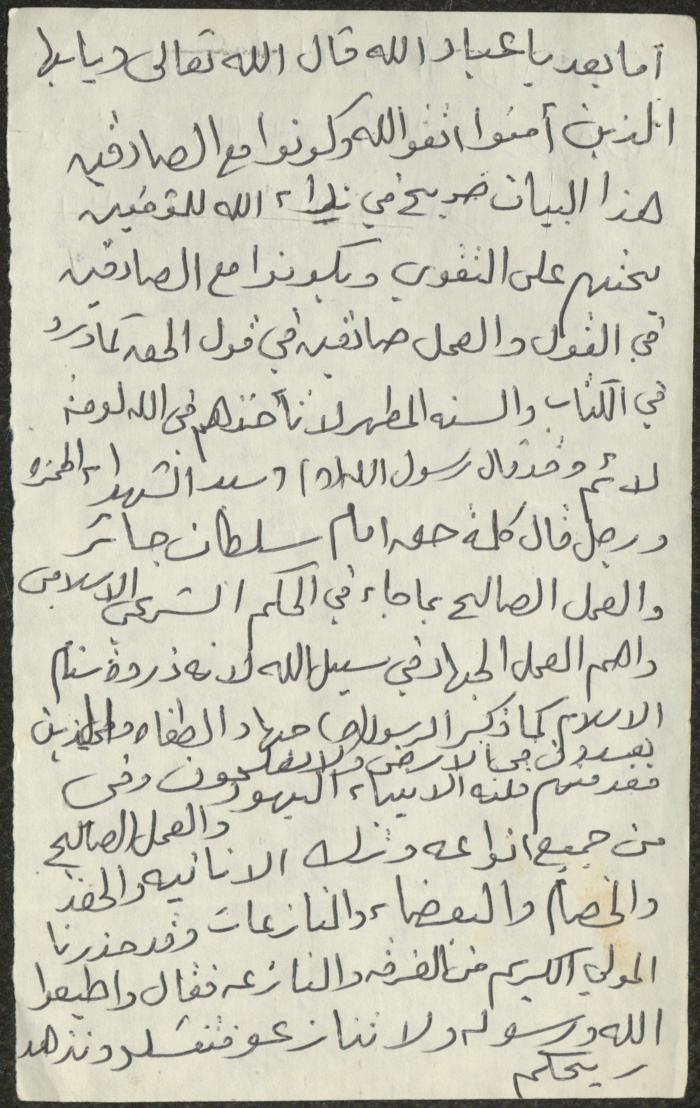 أما بعد يا عباد الله قال الله تعالى (يايها
الذين أمنوا اتقو الله وكونوا مع الصادقين
هذا البيان صريح في نداء الله للمؤمنين
يحثهم على التقوى ويكونوا مع الصادقين
في القول والعمل صادقين في قول الحق كما ورد
في الكتاب والسنه المطهر لا تأخذهم في الله لومة
لائم وقد قال رسول الله (ص) (سيد الشهداء الحمزه
ورجل قال كلمة حق امام سلطان جائر
والعمل الصالح بما جاء في الحكم الشرعي الاسلامي
واهم العمل الجهاد في سبيل الله لانه ذروة سنام
الاسلام كما ذكر الرسول (ص) جهاد الطغاه والذين
يفسدون في الارض ولا يصلحون وفي
مقدمتهم قتلة الانبياء اليهود والعمل الصالح
من جميع انواعه وترك الانانيه والحقد
والخصام والبغضاء والمنازعات وقد حذرنا
المولى الكريم من الفرقه والمنازعه فقال واطيعوا
الله ورسوله ولا تنازعو فتفشلو وتذهب
ريحكم